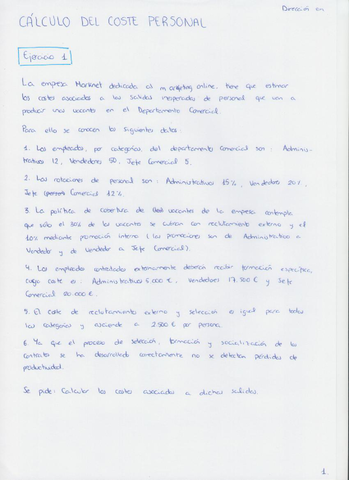 Dirección
CÁLCULO DEL COSTE PERSONAL
Ejercicio 1
La empresa Marknet dedicada al marketing online, tiene que estimar
los costes asociados a las salidas inesperadas de personal que van a
producir unas vacantes en el Departamento Comercial.
Para ello se conocen los siguientes datos:
1. Los empleados, por categorías, del departamento comercial son: Adminis-
trativos 12, Vendedores 50, Jefe Comercial 5.
2. Las rotaciones de personal son: Administrativos 15%, Vendedores 20%,
Jefe Comercial 12%.
3. La política de cobertura de vacantes de la empresa contempla
que sólo el 30% de las vacantes se cubran con reclutamiento externo y el
70% mediante promoción interna (las promociones son de Administrativo a
Vendedor y de Vendedor a Jefe Comercial).
4. Los empleados contratados externamente deberán recibir formación específica,
cuyo coste es: Administrativos 6.000 €, Vendedores 17.500 € y Jefe
Comercial €.
5. El coste de reclutamiento externo y selección es igual para todas
las categorías y asciende a 2.500 € por persona.
6. Ya que el proceso de selección, formación y socialización de los
contratos se ha desarrollado correctamente no se detectan pérdidas de
productividad.
Se pide: Calcular los costes asociados a dichas salidas.
1